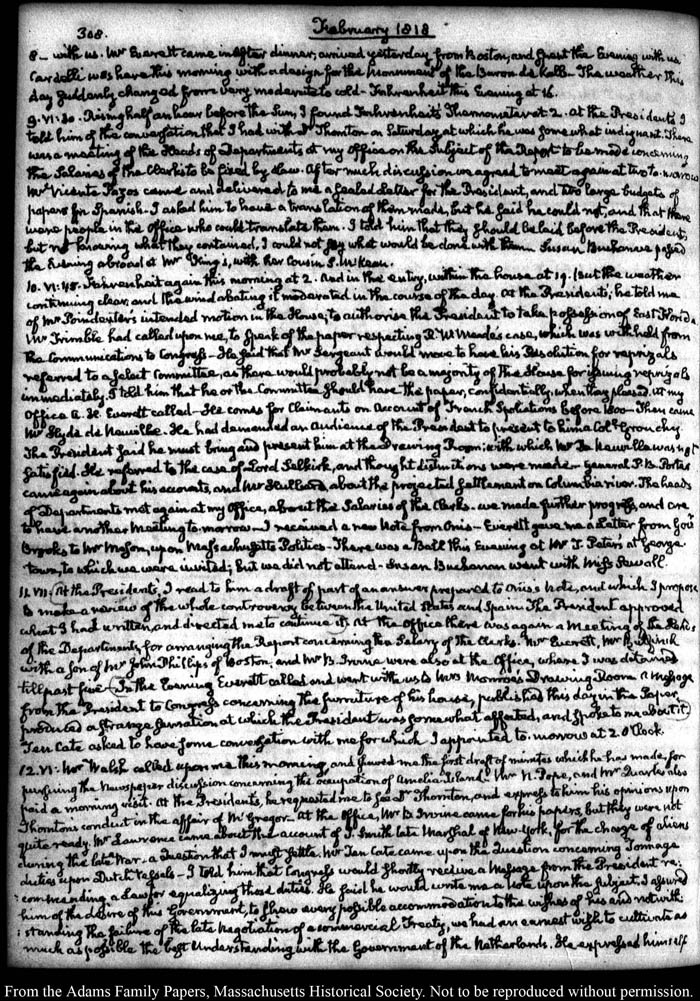 308. February 1818
8_ with us. Mr Everett came in after dinner; arrived yesterday from Boston, and spent the Evening with us
Cardelli was here this morning with a design for the Monument of the Baron de Kalb_ The weather this
day suddenly changed from very moderate to cold_ Fahrenheit this Evening at 16.
9. VI:30. Rising half an hour before the Sun, I found Fahrenheit's Thermometer at 2. At the Presidents I
told him of the conversation that I had with Dr Thornton on Saturday, at which he was somewhat indignant. There
was a meeting of the Heads of Departments at my office on the subject of the Report to be made concerning
the Salaries of the Clerks to be fixed by Law. After much discussion we agreed to meet again at two to-morrow
Mr Vicente Pazos came and delivered to me a sealed Letter for the President, and two large budgets of
papers in Spanish_ I asked him to have a translation of them made, but he said he could not, and that there
were people in the office who could translate them. I told him that they should be laid before the President,
but not knowing what they contained, I could not say what would be done with them_ Susan Buchanan passed
the Evening abroad at Mr King's, with her Cousin S. McKean.
10. VI:45. Fahrenheit again this morning at 2. And in the entry, within the house at 19. But the weather
continuing clear, and the wind abating it moderated in the course of the day. At the Presidents, he told me
of Mr Poindexter's intended motion in the House, to authorise the President to take possession of East Florida
Mr Trimble had called upon me, to speak of the paper respecting R. W. Meade's case, which was withheld from
the Communications to Congress_ He said that Mr Sergeant would move to have his Resolution for reprizals
referred to a select Committee, as there would probably not be a majority of the House for issuing reprizals
immediately. I told him that he or the Committee should have the paper, confidentially, when they pleased. At my
Office A. H. Everett called_ He comes for Claimants on Account of French Spoliations before 1800_ Then came
Mr Hyde de Neuville. He had demanded an Audience of the President to present to him a Coll Grouchy
The President said he must bring and present him at the Drawing Room: with which Mr de Neuville was not
satisfied. He referred to the case of Lord Selkirk, and thought distinctions were made_ General P. B. Porter
came again about his accounts, and Mr Hulbard about the projected settlement on Columbia river. The heads
of Departments met again at my Office, about the Salaries of the Clerks_ we made further progress, and are
to have another Meeting to-morrow_ I received a new Note from Onis_ Everett gave me a Letter from Govr
Brooks to Mr Mason, upon Massachusetts Politics_ There was a Ball this Evening at Mr T. Peter's at George-
town, to which we were invited; but we did not attend_ Susan Buchanan went with Miss Sewall.
11. VII. At the Presidents, I read to him a draft of part of an answer prepared to Onis's Note, and which I propose
to make a review of the whole controversy between the United States and Spain. The President approved
what I had written, and directed me to continue it. At the office there was again a Meeting of the Heads
of the Departments, for arranging the Report concerning the Salary of the Clerks. Mr Everett, Mr
with a son of Mr John Phillips of Boston, and Mr B. Irvine were also at the Office, where I was detained
till past five_ In the Evening Everett called and went with us to Mrs Monroe's Drawing Room. A Message
from the President to Congress concerning the furniture of his house, published this day in the Paper,
produced a strange sensation at which the President was somewhat affected, and spoke to me about it.
Ten Cate asked to have some conversation with me for which I appointed to-morrow at 2 O'Clock.
12. VI: Mr Walsh called upon me this morning, and shewed me the first draft of minutes which he has made, for
pursuing the Newspaper discussion concerning the occupation of Amelia Island_ Mr N. Pope, and Mr Quarles also
paid a morning visit. At the Presidents, he requested me to see Dr Thornton, and express to him his opinions upon
Thorntons conduct in the affair of McGregor_ At the Office, Mr B Irvine came for his papers, but they were not
quite ready. Mr Lawrence came about the account of J. Smith late Marshal of New-York, for the charge of aliens
during the late War_ a Question that I must settle. Mr Ten Cate came upon the Question concerning Tonnage
duties upon Dutch Vessels_ I told him that Congress would shortly receive a Message from the President re-
:commending a Law for equalizing those duties. He said he would write me a Note upon the subject. I assured
him of the desire of this Government, to shew every possible accommodation to the wishes of his and notwith:
:standing the failure of the late Negotiation of a commercial Treaty, we had an earnest wish to cultivate as
much as possible the best Understanding with the Government of the Netherlands. He expressed himself
From the Adams Family Papers, Massachusetts Historical Society. Not to be reproduced without permission.